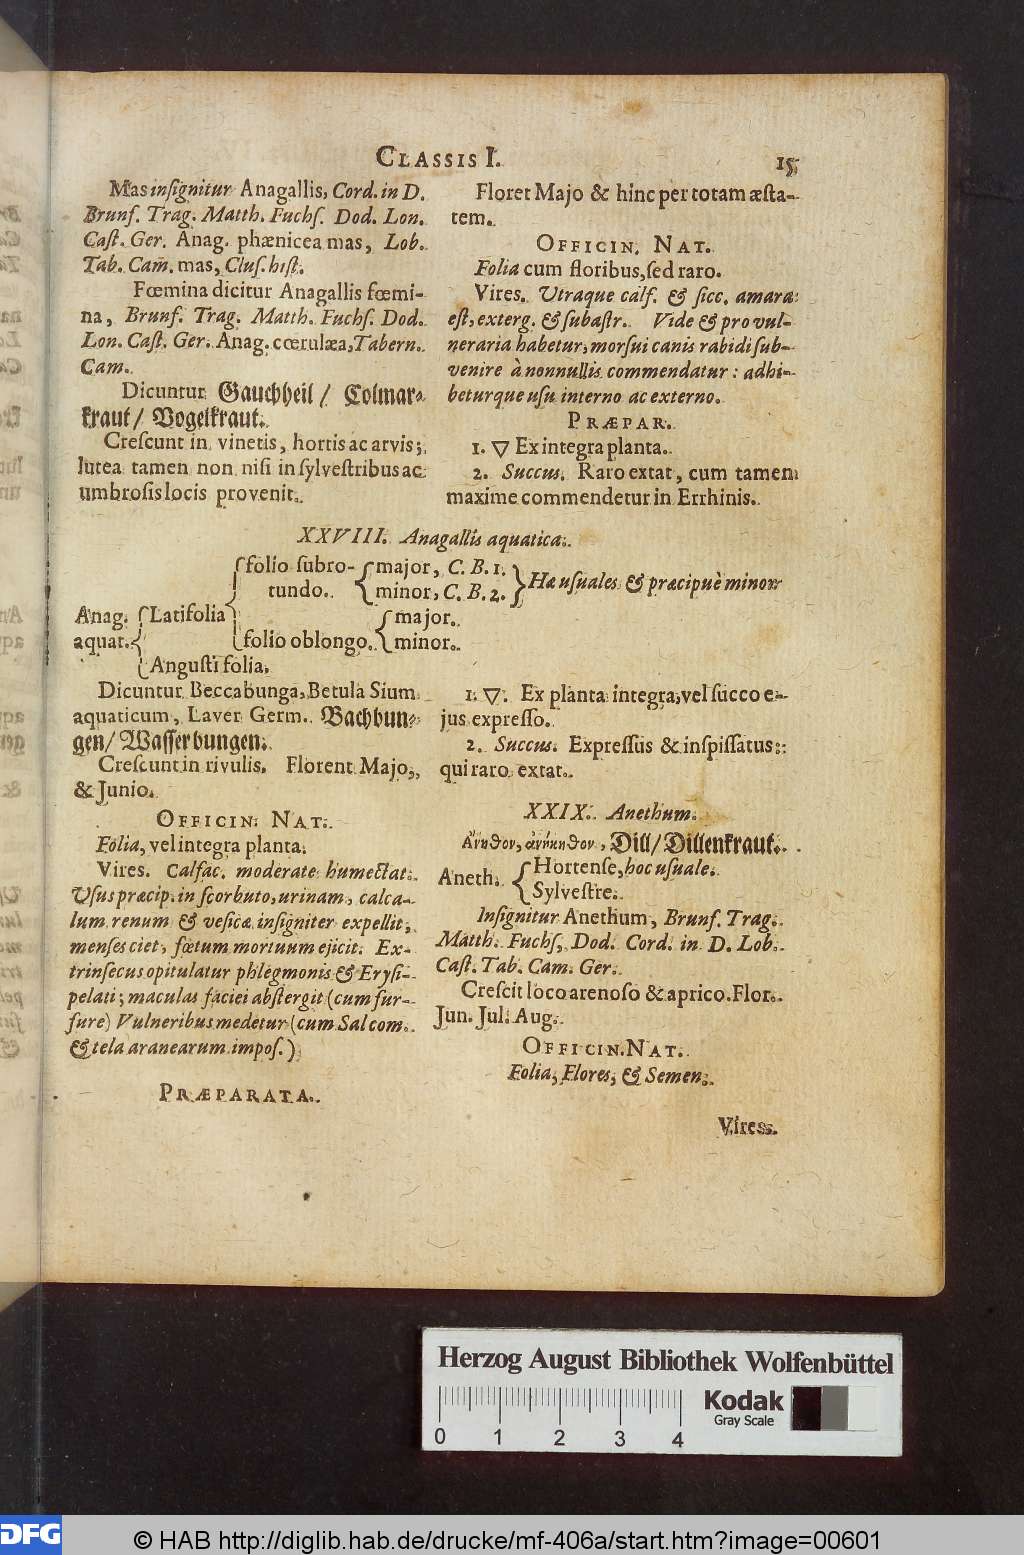 CLASSIS I. 15
Mas insignitur Anagallis, Cord. in D.
Brunf. Trag. Matth. Fuchs. Dod. Lon.
Cast. Ger. Anag. phœnicea mas, Lob.
Tab. Cam. mas, Clus. hist.
Fœmina dicitur Anagallis fœmi-
na, Brunf. Trag. Matth. Fuchs. Dod.
Lon. Cast. Ger. Anag. cœrulæa, Tabern.
Cam.
Dicuntur Gauchheil / Colmar-
kraut / Vogelkraut.
Crescunt in vinetis, hortis ac arvis;
lutea tamen non nisi in sylvestribus ac
umbrosis locis provenit.
Floret Majo & hinc per totam æsta-
tem.
OFFICIN. NAT.
Folia cum floribus, sed raro.
Vires. Utraque calf. & sicc. amara
est, exterg. & subastr. Vide & pro vul-
neraria habetur, morsui canis rabidi sub-
venire à nonnullis commendatur: adhi-
beturque usu interno ac externo.
PRÆPAR.
1. ▽ Ex integra planta.
2. Succus. Raro extat, cum tamen
maxime commendetur in Errhinis.
XXVIII. Anagallis aquatica.
Anag. aquat. { Latifolia { folio subro-tundo. { major, C. B. 1.
minor, C. B. 2. } Hæ usuales & præcipuè minor
folio oblongo. { major.
minor.
Angustifolia.
Dicuntur Beccabunga, Betula Sium
aquaticum, Laver Germ. Bachbun-
gen / Wasserbungen.
Crescunt in rivulis. Florent Majo,
& Junio.
OFFICIN. NAT.
Folia, vel integra planta.
Vires. Calfac. moderate humectat.
Usus præcip. in scorbuto, urinam, calca-
lum renum & vesicæ insigniter expellit,
menses ciet, fœtum mortuum ejicit. Ex-
trinsecus opitulatur phlegmonis & Erysi-
pelati; maculas faciei abstergit (cum fur-
fure) Vulneribus medetur (cum Sal com.
& tela aranearum impos.)
PRÆPARATA.
1. ▽. Ex planta integra, vel succo e-
jus expresso.
2. Succus. Expressus & inspissatus:
qui raro extat.
XXIX. Anethum.
Ἄνηθον, ἀνήκηθον, Dill / Dillenkraut.
Aneth. { Hortense, hoc usuale.
Sylvestre.
Insignitur Anethum, Brunf. Trag.
Matth. Fuchs, Dod. Cord. in D. Lob.
Cast. Tab. Cam. Ger.
Crescit loco arenoso & aprico. Flor.
Jun. Jul. Aug.
OFFICIN. NAT.
Folia, Flores, & Semen.
Vires.
Herzog August Bibliothek Wolfenbüttel
Kodak
Gray Scale
0 1 2 3 4
DFG
© HAB http://diglib.hab.de/drucke/mf-406a/start.htm?image=00601